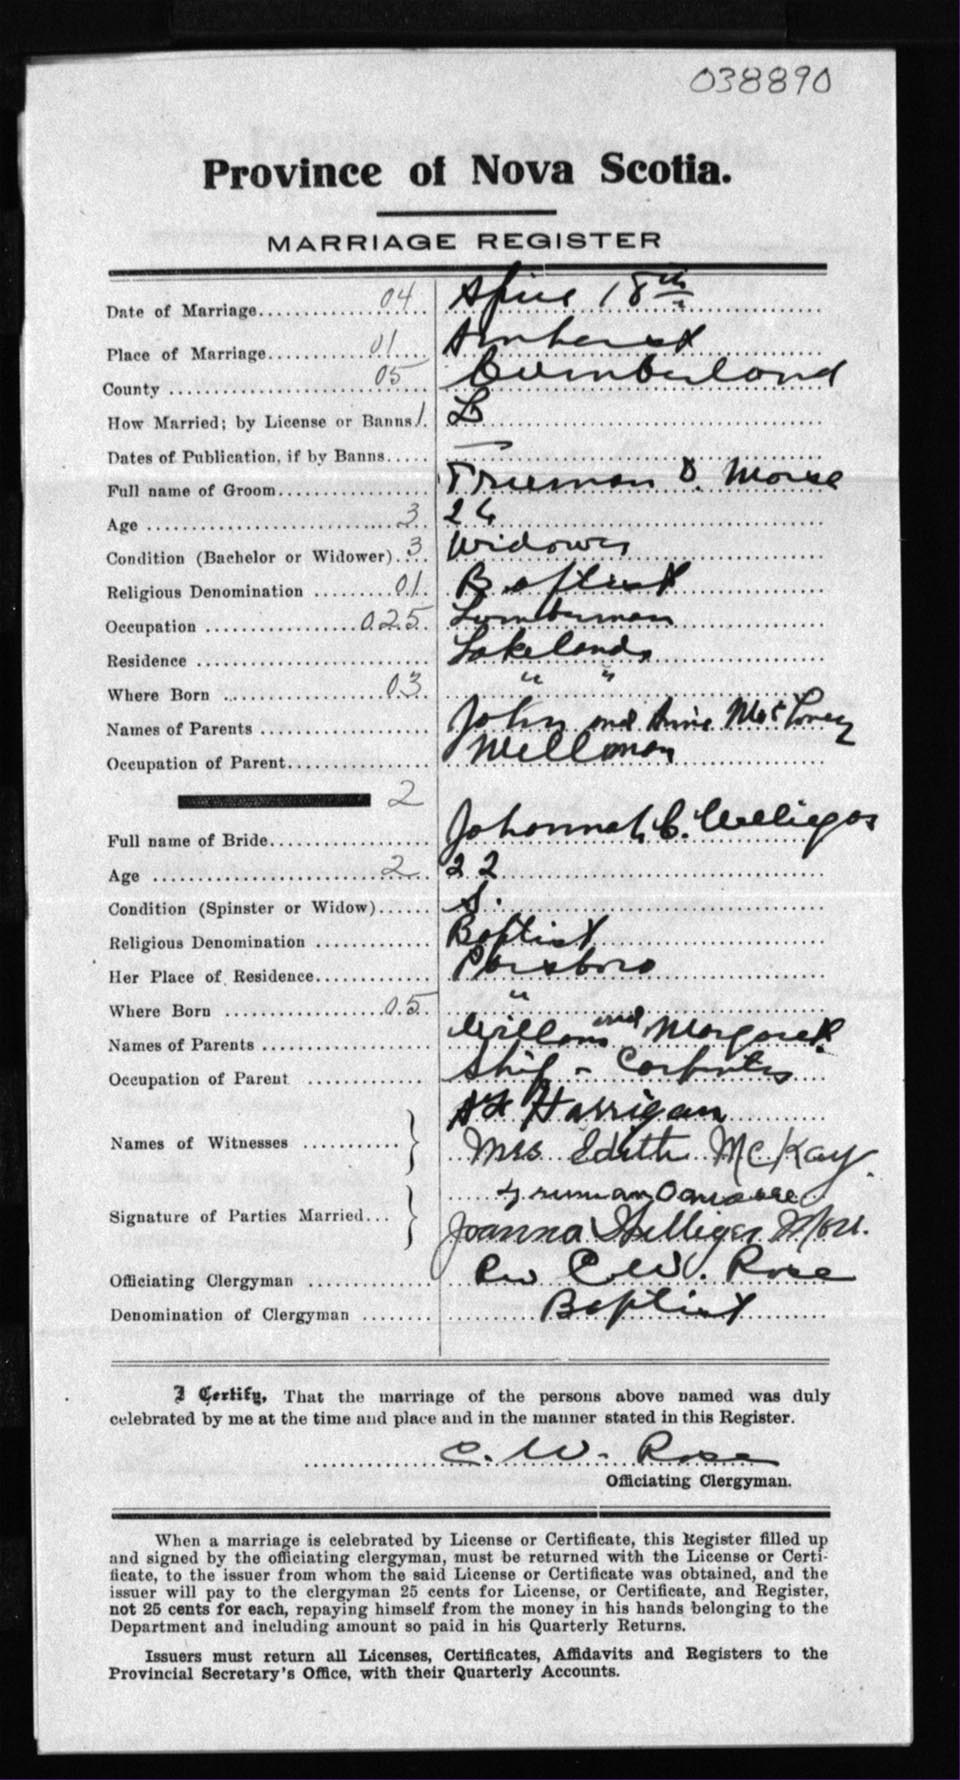 038890
Province of Nova Scotia.
MARRIAGE REGISTER
Date of Marriage 04 April 18th
Place of Marriage 01 Amherst
County 05 Cumberland
How Married; by License or Banns 1. L
Dates of Publication, if by Banns —
Full name of Groom Freeman D. Morse
Age 3 26
Condition (Bachelor or Widower) 3 Widower
Religious Denomination 01 Baptist
Occupation 025 Lumberman
Residence Lakelands
Where Born 03 " "
Names of Parents John and Annie
Occupation of Parent Millman
2
Full name of Bride Johannah C.
Age 2 22
Condition (Spinster or Widow) S.
Religious Denomination Baptist
Her Place of Residence Parsboro
Where Born 05 "
Names of Parents William and Margaret
Occupation of Parent Ship - Carpenter
Harrigan
Names of Witnesses Mrs Edith McKay.
Signature of Parties Married Joanna
Officiating Clergyman Rev C. W. Rose
Denomination of Clergyman Baptist
I Certify, That the marriage of the persons above named was duly
celebrated by me at the time and place and in the manner stated in this Register.
C. W. Rose
Officiating Clergyman.
When a marriage is celebrated by License or Certificate, this Register filled up
and signed by the officiating clergyman, must be returned with the License or Certi-
ficate, to the issuer from whom the said License or Certificate was obtained, and the
issuer will pay to the clergyman 25 cents for License, or Certificate, and Register,
not 25 cents for each, repaying himself from the money in his hands belonging to the
Department and including amount so paid in his Quarterly Returns.
Issuers must return all Licenses, Certificates, Affidavits and Registers to the
Provincial Secretary's Office, with their Quarterly Accounts.